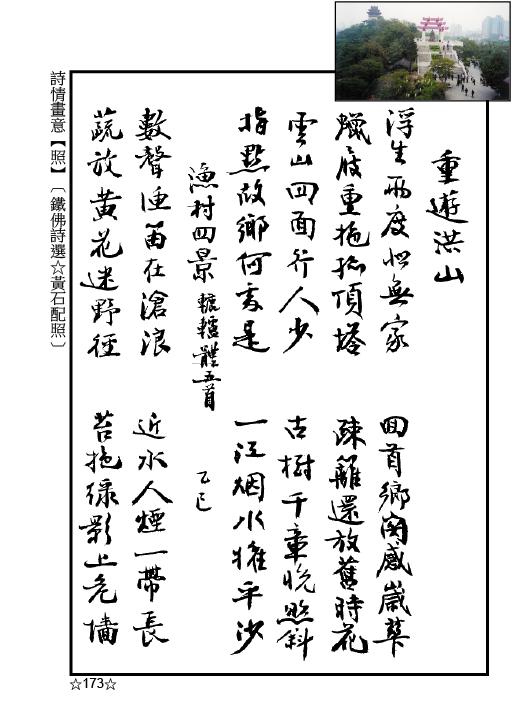 重遊洪山
浮生兩度悵無家　回首鄉關感歲華
蠟屐重拖頂塔　疎籬還放舊時花
雲山四面行人少　古樹千章晚照斜
指點故鄉何處是　一江烟水擁平沙
漁村四景 轆轤體五首　乙巳
數聲漁笛在滄浪　近水人煙一帶長
蔬放黃花迷野徑　苔拖綠影上危墻
詩情畫意【照】〔鐵佛詩選☆黃石配照〕
☆173☆